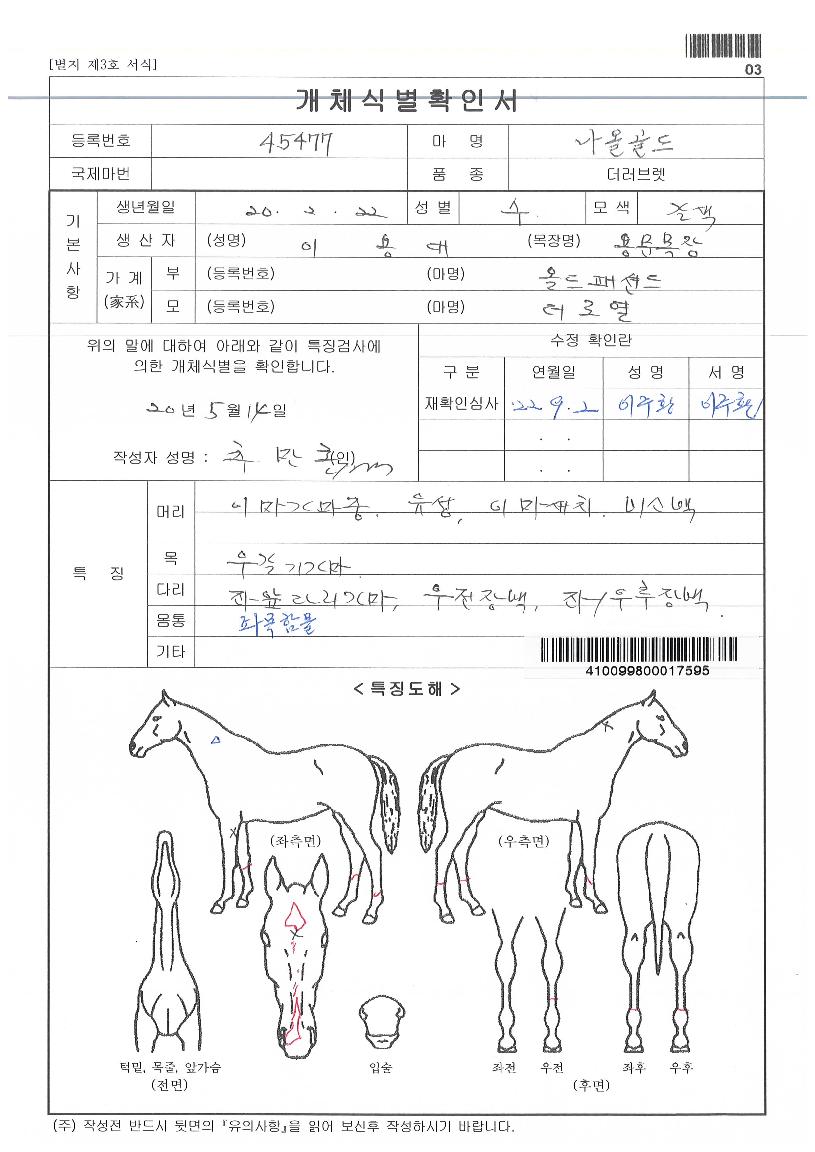 [별지 제3호 서식]
03
개체식별확인서
등록번호 45477 마 명 나올골드
국제마번 품 종 더러브렛
기본사항
생년월일 20. 2. 22 성 별 수 모 색
생 산 자 (성명) 이 용 대 (목장명) 용문목장
가 계 (家系) 부 (등록번호) (마명) 올드패션드
모 (등록번호) (마명) 터로열
위의 말에 대하여 아래와 같이 특징검사에
의한 개체식별을 확인합니다.
20년 5월 14일
작성자 성명 : 추 만 (인)
수정 확인란
구 분 연월일 성 명 서 명
재확인심사 '22. 9. 2 이주환 이주환
. .
. .
특 징
머리 이마가마중, 유성, 비소백
목
다리 좌앞다리가마, 우전장백, 좌/우후장백.
몸통 좌목함몰
기타
410099800017595
< 특징도해 >
(좌측면) (우측면)
턱밑, 목줄, 앞가슴 입술 좌전 우전 좌후 우후
(전면) (후면)
(주) 작성전 반드시 뒷면의 『유의사항』을 읽어 보신후 작성하시기 바랍니다.